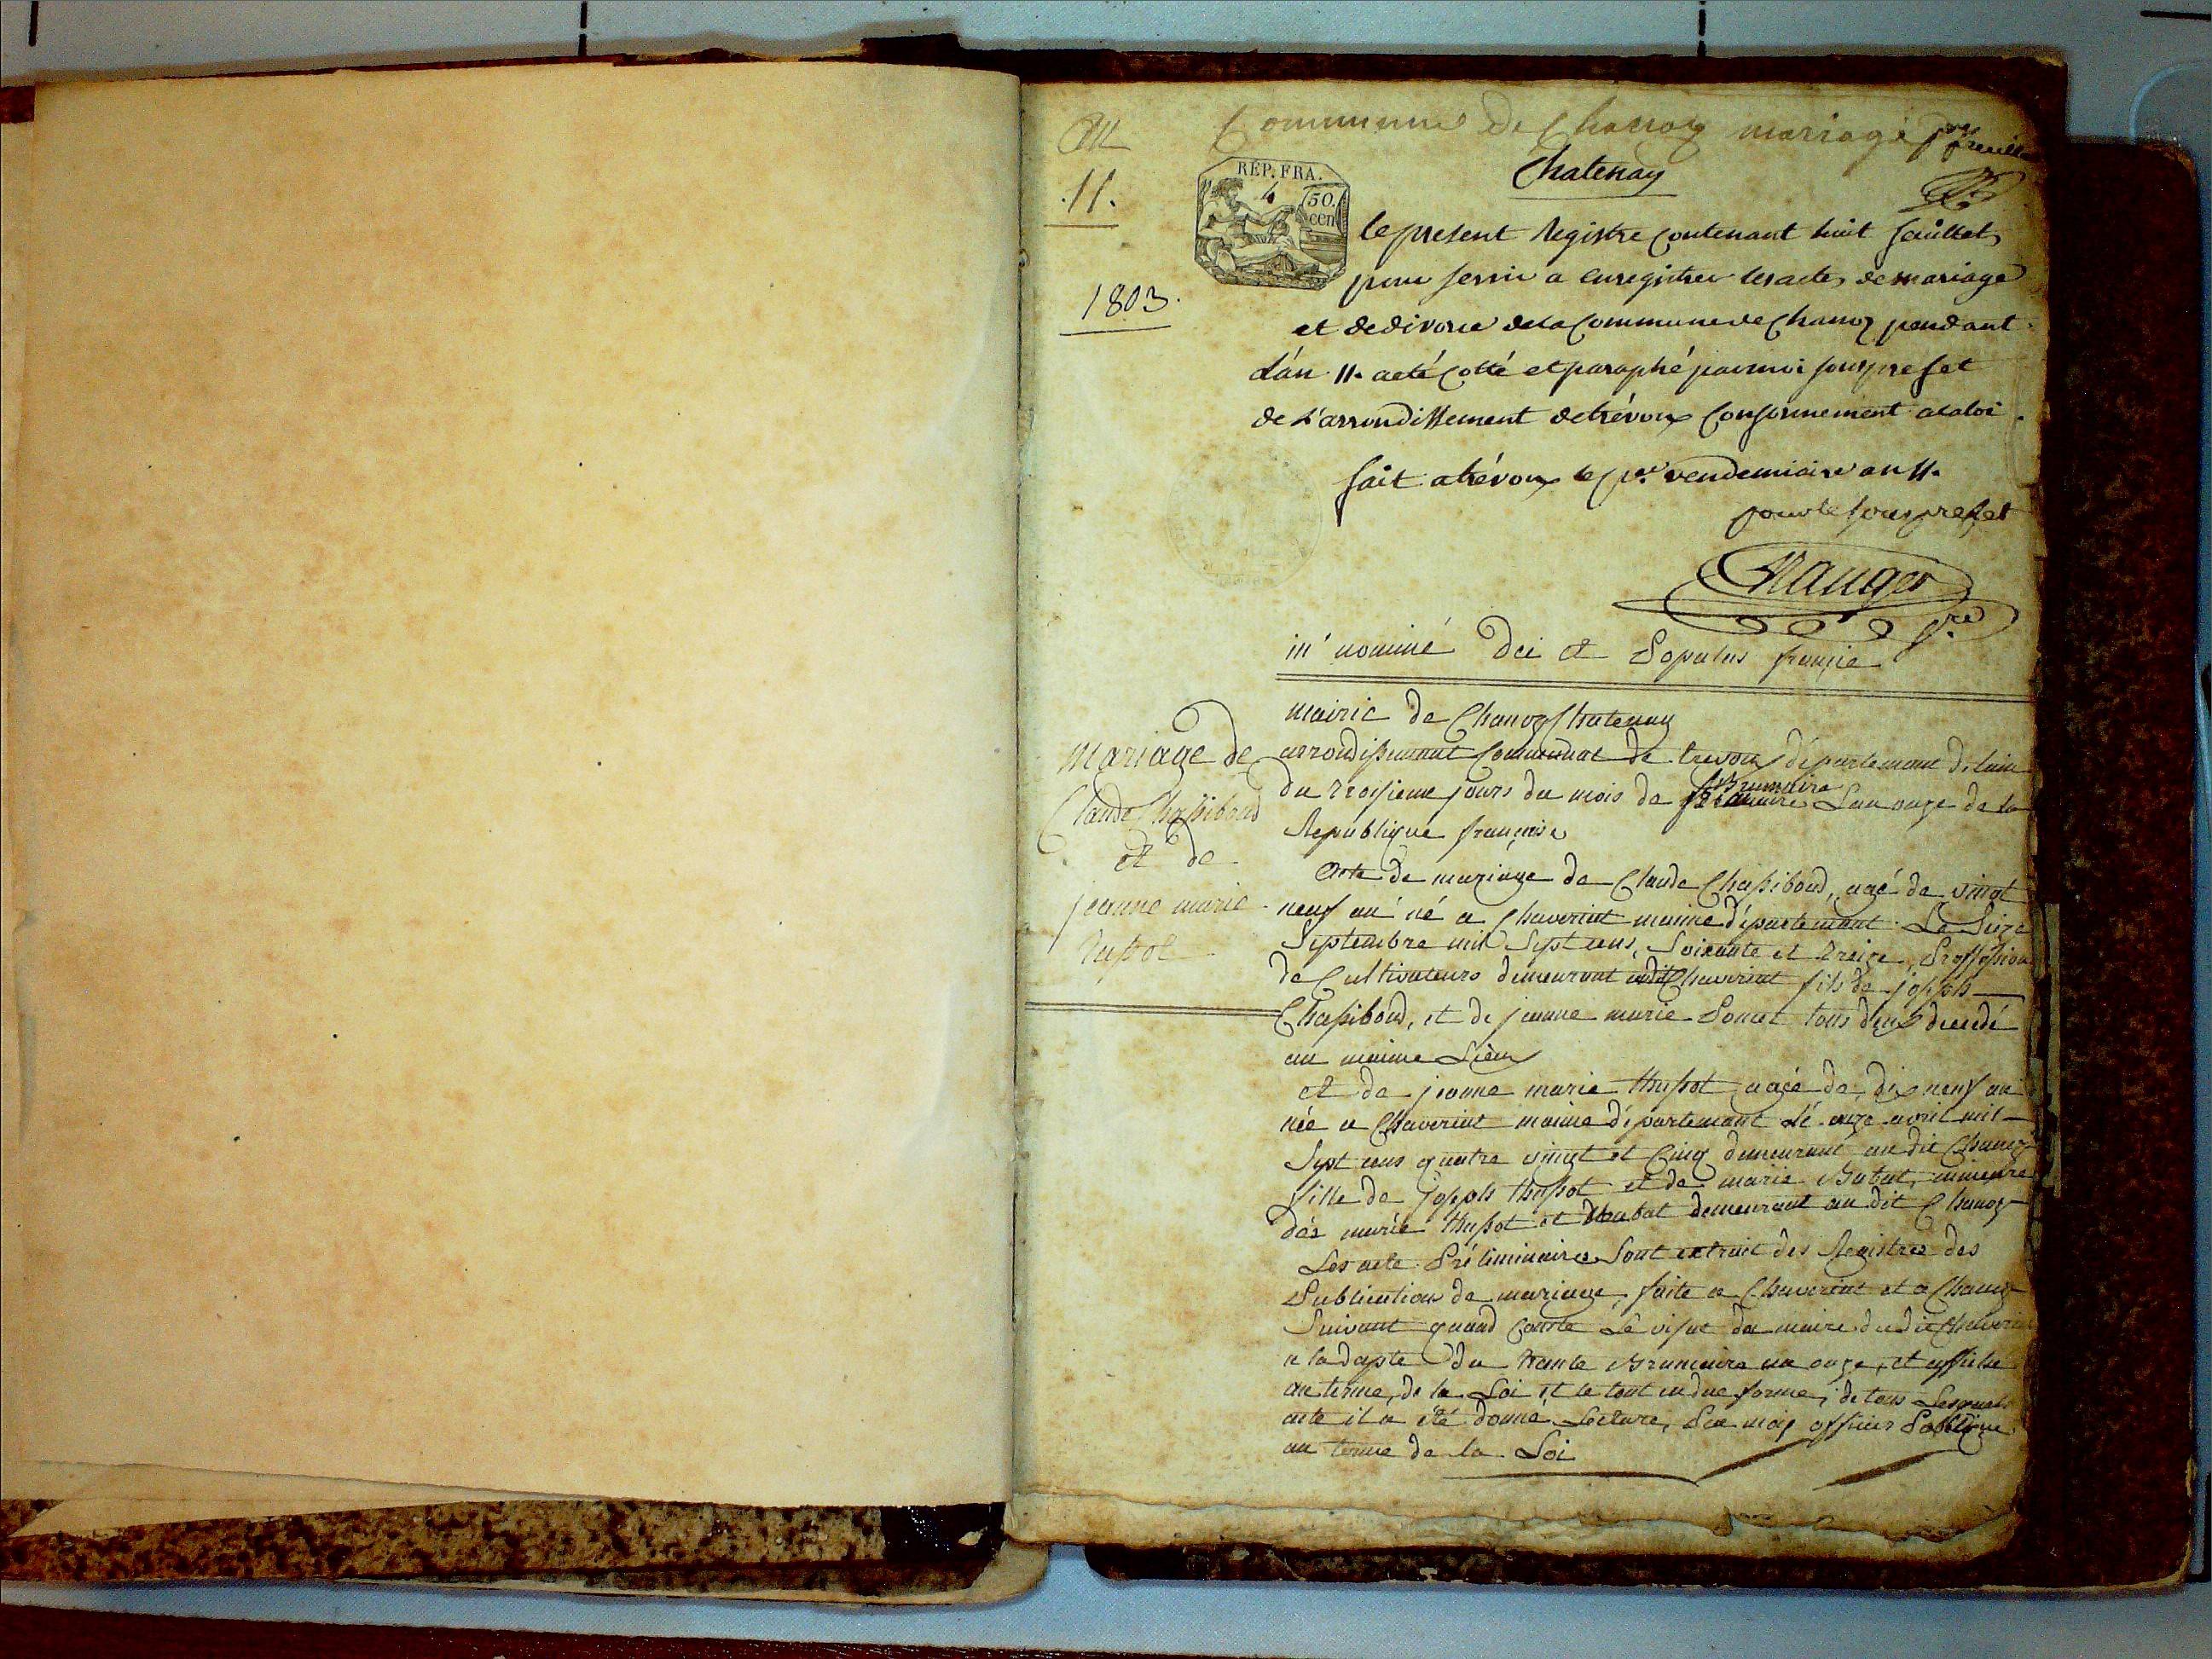 an
.11.
1803.
Commune de Chanoz mariage
Chatenay
REP. FRA.
50.
cen
le present Registre contenant huit feuillets
pour servir a enregistrer les actes de mariage
et de divorce de la Commune de Chanoz pendant
l'an 11. a eté cotté et paraphé par moi sous prefet
de L'arrondissement de trévoux Conformement a la loi
fait a trévoux le per. vendemiaire an 11.
pour le sous prefet
in nominé Dei et Populus
mairie de Chanoz Chatenay
arrondissement Communal de trevoux département de lain
du Troisieme jours du mois de frimaire Lan onze de la
Republique française
Mariage de
Claude Chassiboud
et de
jeanne marie
tupot
Acte de mariage de Claude Chassiboud, agé de vingt
neuf an né a Chaveriat maime département Le Seize
Septembre mil Sept cens, Soixante et Treize, Proffession
de Cultivateurs demeurant Chaveriat fils de joseph
Chassiboud, et de jeanne marie tous deux decedé
au maime Lieu
et de jeanne marie thupot agée de dix neuf an
née a Chaveriat maime département le onze avril mil
Sept cens quatre vingt et Cinq demeurant au dit Chanoz
fille de joseph thupot et de marie Babat,
dés marié thupot et Babat demeurant au dit Chanoz
Les acte Préliminaires Sont extrait des Registres des
Publication de mariage, faite a Chaveriat et a Chanoz
Suivant quand Conste Le du maire du dit Chaveriat
a la dapte du trante Brumaire an onze, et affiche
au terme, de la Loi et le tout en due forme, de tous Lesquels
acte il a été donné Lecture, Par moi officier Publique
au terme de la Loi